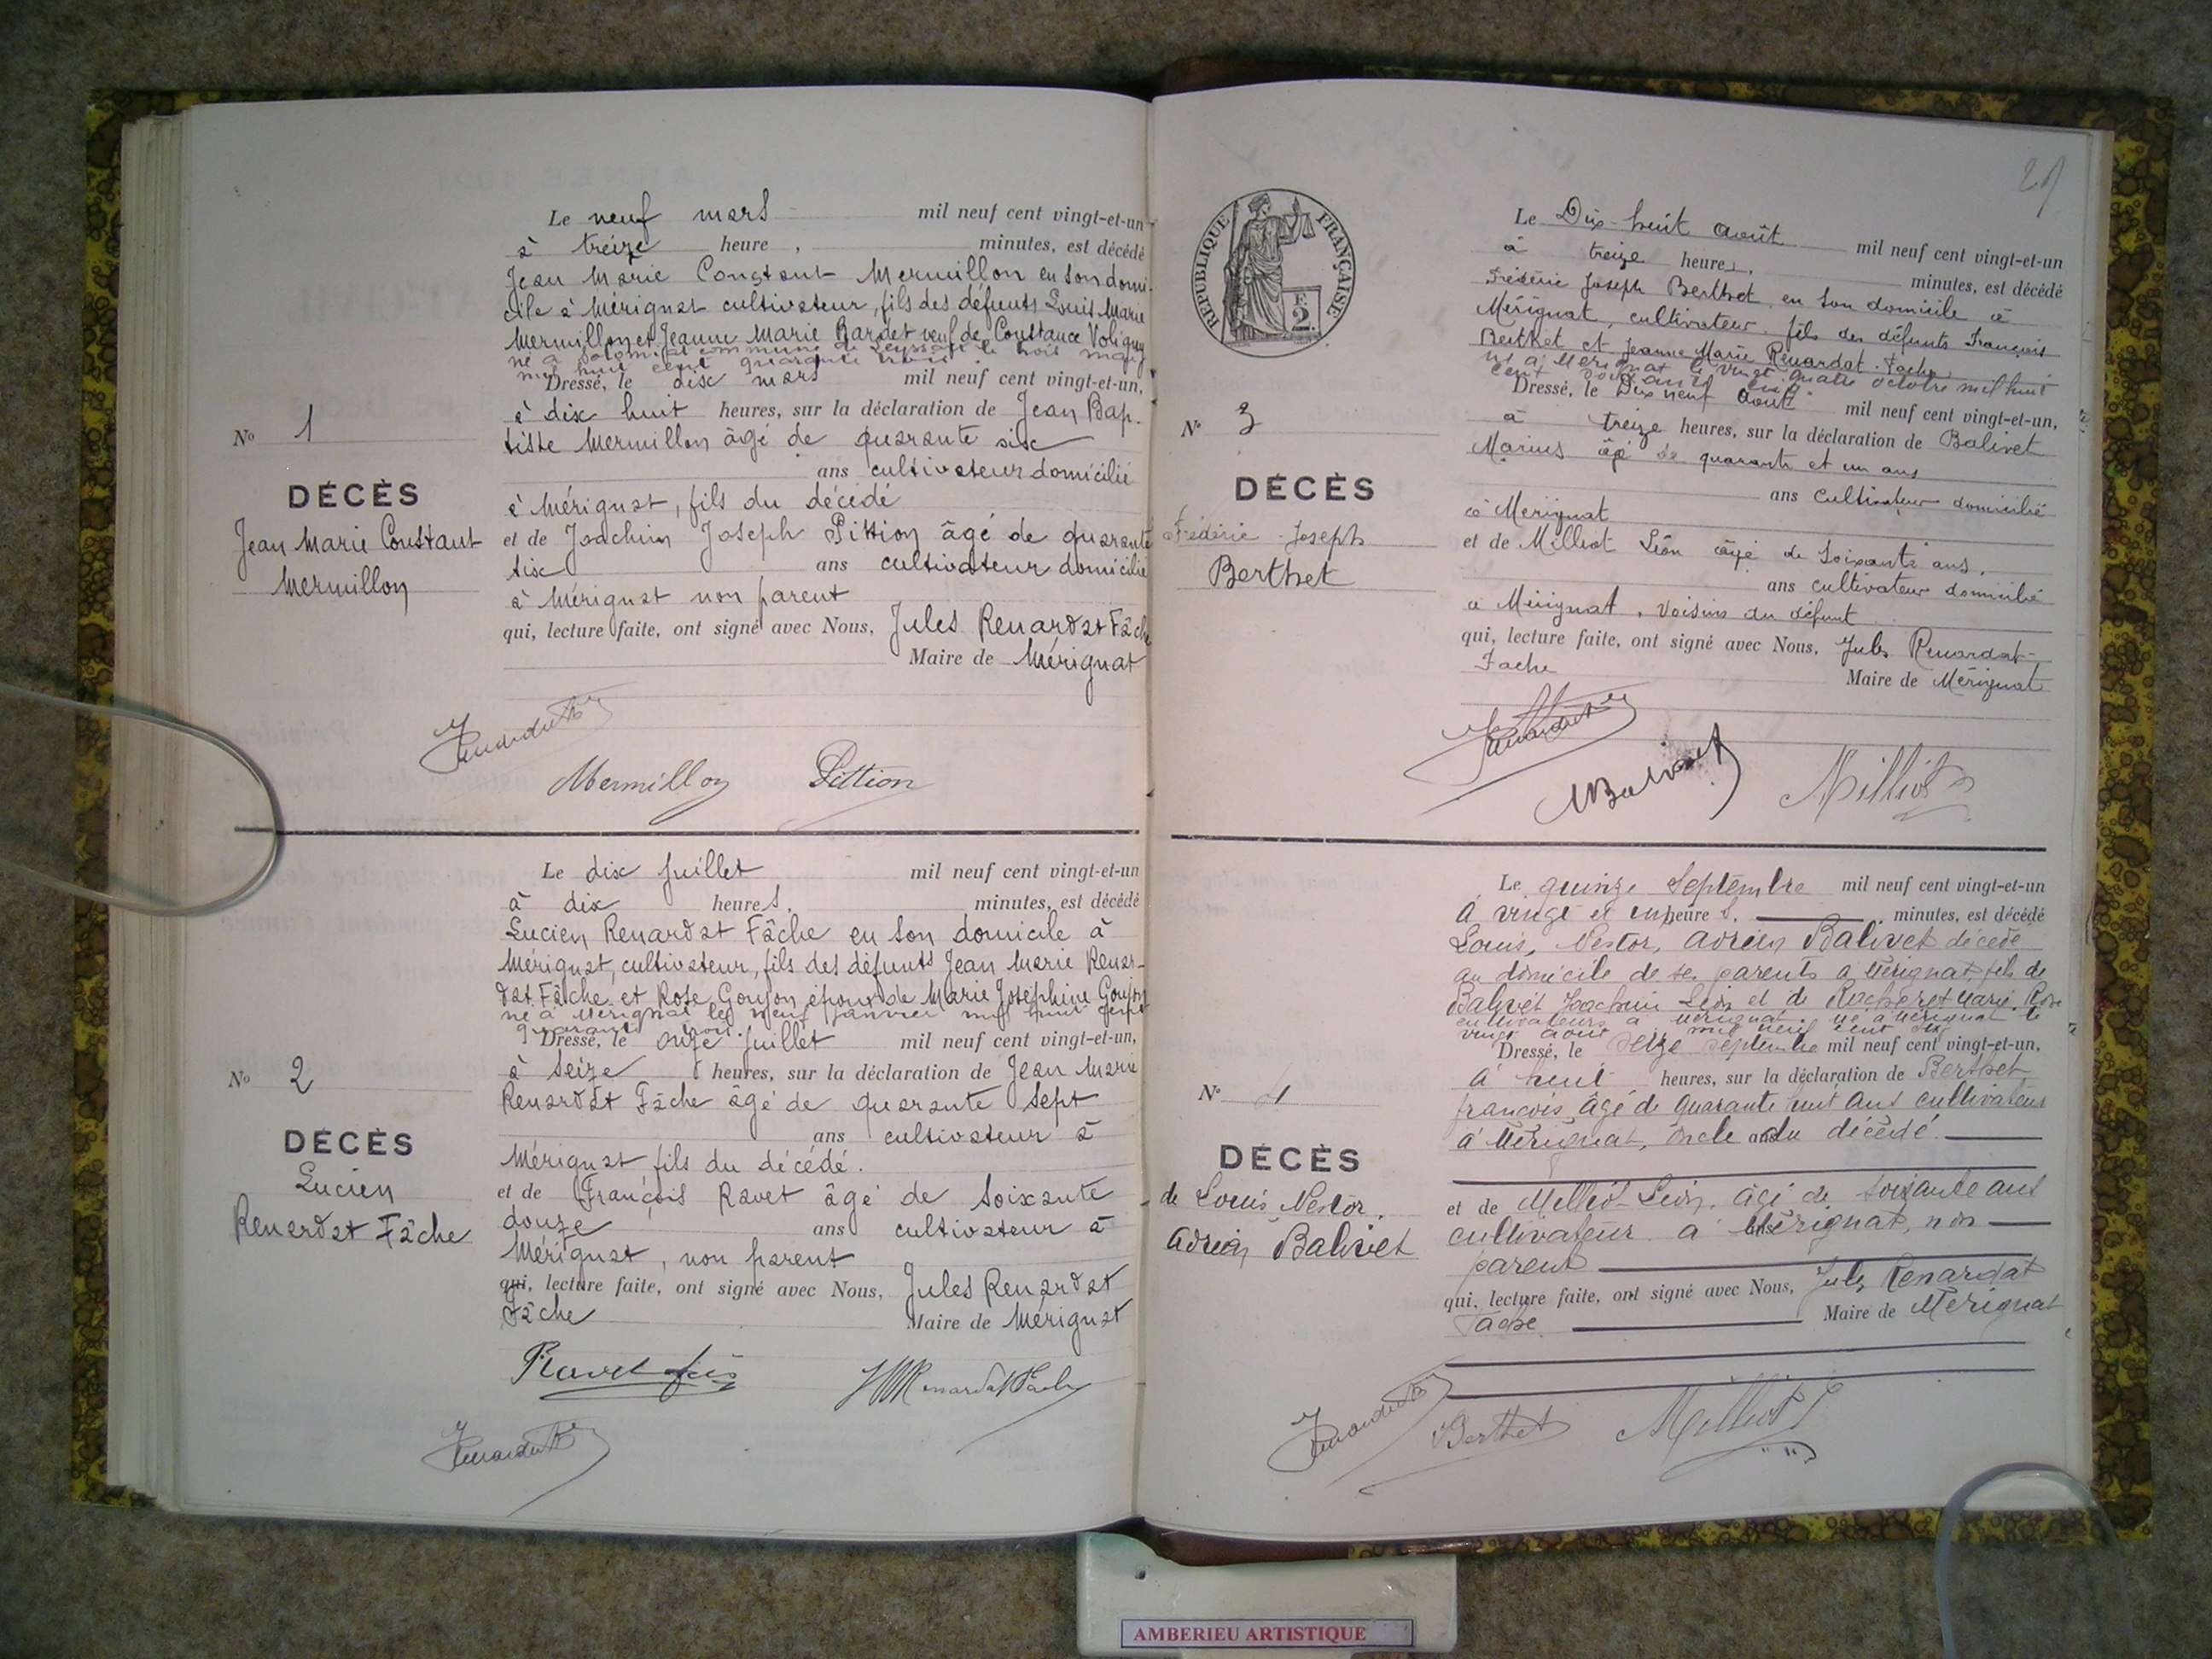 Le neuf mars mil neuf cent vingt-et-un
à treize heure , minutes, est décédé
Jean Marie Constant Mermillon en son domi-
cile à Mérignat cultivateur, fils des défunts Louis Marie
Mermillon et Jeanne Marie Bardet veuf de Constance Voligny
né à commune de Leyssard le trois mars
mil huit cent quarante trois
Dressé, le dix mars mil neuf cent vingt-et-un,
à dix huit heures, sur la déclaration de Jean Bap-
tiste Mermillon âgé de quarante six
ans cultivateur domicilié
à Mérignat, fils du décédé
et de Joachim Joseph Pittion âgé de quarante
six ans cultivateur domicilié
à Mérignat non parent
qui, lecture faite, ont signé avec Nous, Jules Renardat Fâche
Maire de Mérignat
No 1
DÉCÈS
Jean Marie Constant
Mermillon
Mermillon Pittion
Le dix Juillet mil neuf cent vingt-et-un
à dix heures, minutes, est décédé
Lucien Renardat Fâche en son domicile à
Mérignat, cultivateur, fils des défunts Jean Marie Renar-
dat Fâche et Rose Goujon époux de Marie Josephine Goujon
né à Mérignat le neuf janvier mil huit cent
quarante trois
Dressé, le onze juillet mil neuf cent vingt-et-un,
à seize heures, sur la déclaration de Jean Marie
Renardat Fâche âgé de quarante sept
ans cultivateur à
Mérignat fils du décédé.
et de François Ravet âgé de soixante
douze ans cultivateur à
Mérignat, non parent
qui, lecture faite, ont signé avec Nous, Jules Renardat
Fâche Maire de Mérignat
No 2
DÉCÈS
Lucien
Renardat Fâche
Ravet JM Renardat Fache
RÉPUBLIQUE FRANÇAISE
F.
2
Le Dix-huit août mil neuf cent vingt-et-un
à treize heures, minutes, est décédé
Frédéric Joseph Berthet en son domicile à
Mérignat, cultivateur. fils des défunts François
Berthet et Jeanne Marie Renardat-Fache
né à Mérignat le vingt quatre octobre mil huit
cent soixante cinq
Dressé, le Dix neuf Août mil neuf cent vingt-et-un,
à treize heures, sur la déclaration de Balivet
Marius âgé de quarante et un ans
ans cultivateur domicilié
à Mérignat
et de Milliot Léon âgé de soixante ans,
ans cultivateur domicilié
à Mérignat, voisins du défunt
qui, lecture faite, ont signé avec Nous, Jules Renardat-
Fache Maire de Mérignat
No 3
DÉCÈS
Frédéric Joseph
Berthet
MBalivet Milliot
Le quinze Septembre mil neuf cent vingt-et-un
à vingt et un heures, minutes, est décédé
Louis, Nestor, Adrien Balivet décédé
au domicile de ses parents à Mérignat, fils de
Balivet Joachim Léon et de Rocheret Marie Rose
cultivateurs à Mérignat. né à Mérignat le
vingt août mil neuf cent six
Dressé, le seize septembre mil neuf cent vingt-et-un,
à huit heures, sur la déclaration de Berthet
françois, âgé de quarante huit ans cultivateur
à Mérignat, oncle ans du décédé.
et de Milliot Léon, âgé de soixante ans
cultivateur à Mérignat, non
parent
qui, lecture faite, ont signé avec Nous, Jules Renardat
Fache Maire de Mérignat
No 4
DÉCÈS
de Louis Nestor,
Adrien Balivet
Berthet Milliot
AMBERIEU ARTISTIQUE